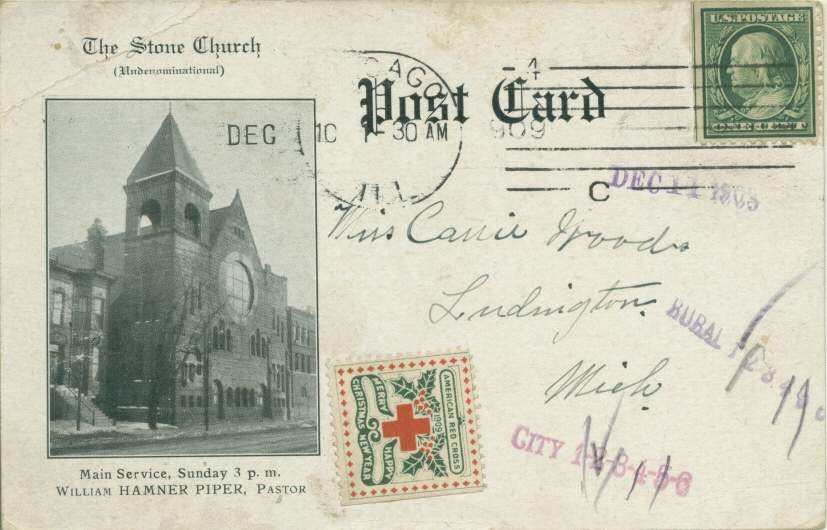 The Stone Church
(Undenominational)
Post Card
U.S. POSTAGE
CAGO
ILL
DEC 10
1-30 AM
4
909
C
DEC 11
Miss Carrie Woods
Ludington
Mich
RURAL 1 2 3 4 5 6
CITY 1-2-3-4-5-6
AMERICAN RED CROSS
1909
MERRY
CHRISTMAS
HAPPY
NEW YEAR
Main Service, Sunday 3 p. m.
WILLIAM HAMNER PIPER, PASTOR